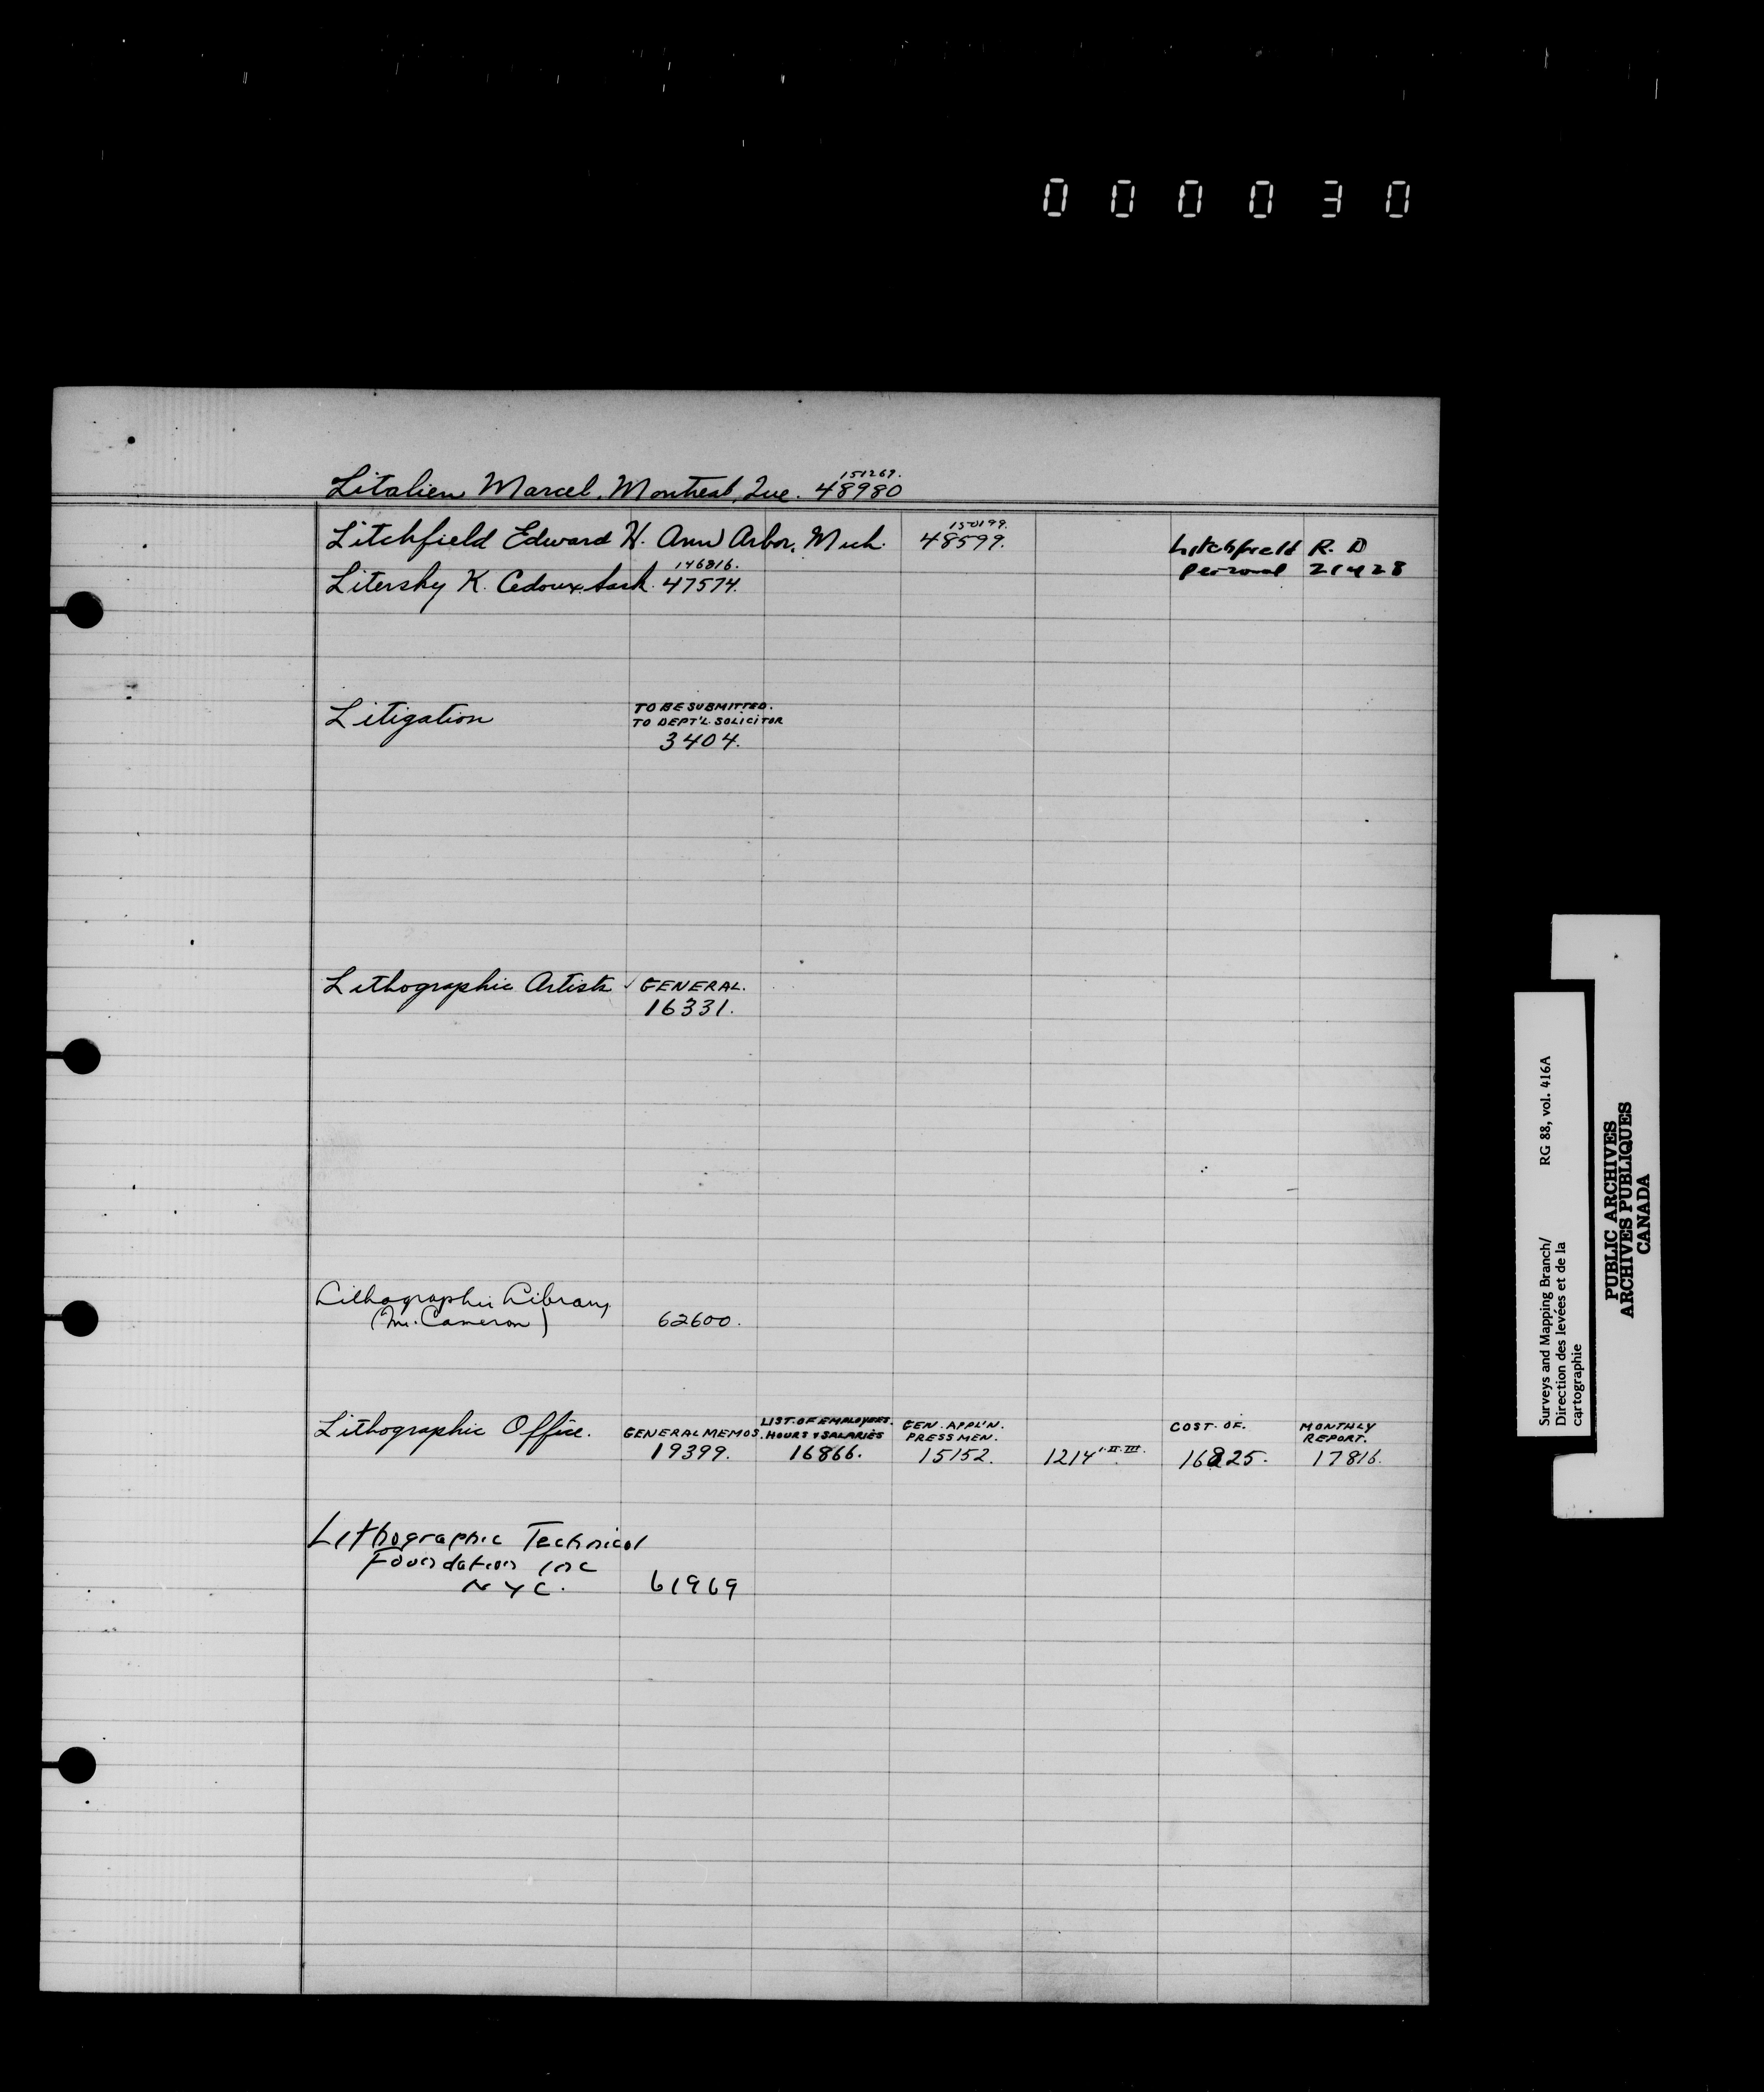 000030
151269.
Litalien Marcel, Montreal, Que. 48980
150199.
Litchfield Edward H. Ann Arbor, Mich. 48599.
Litchfield R. D
Personal 21428
146816.
Litersky K. Cedoux, Sask. 47574.
Litigation
TO BE SUBMITTED.
TO DEPT'L. SOLICITOR
3404.
Lithographic Artists GENERAL.
16331.
Lithographic Library
(Mr. Cameron) 62600.
Lithographic Office.
GENERAL MEMOS.
19399.
LIST. OF EMPLOYEES.
HOURS & SALARIES
16866.
GEN. APPL'N.
PRESSMEN.
15152.
1214 I.II.III.
COST. OF.
16825.
MONTHLY
REPORT.
17816.
Lithographic Technical
Foundation Inc
N Y C. 61969
Surveys and Mapping Branch/ RG 88, vol. 416A
Direction des levées et de la
cartographie
PUBLIC ARCHIVES
ARCHIVES PUBLIQUES
CANADA